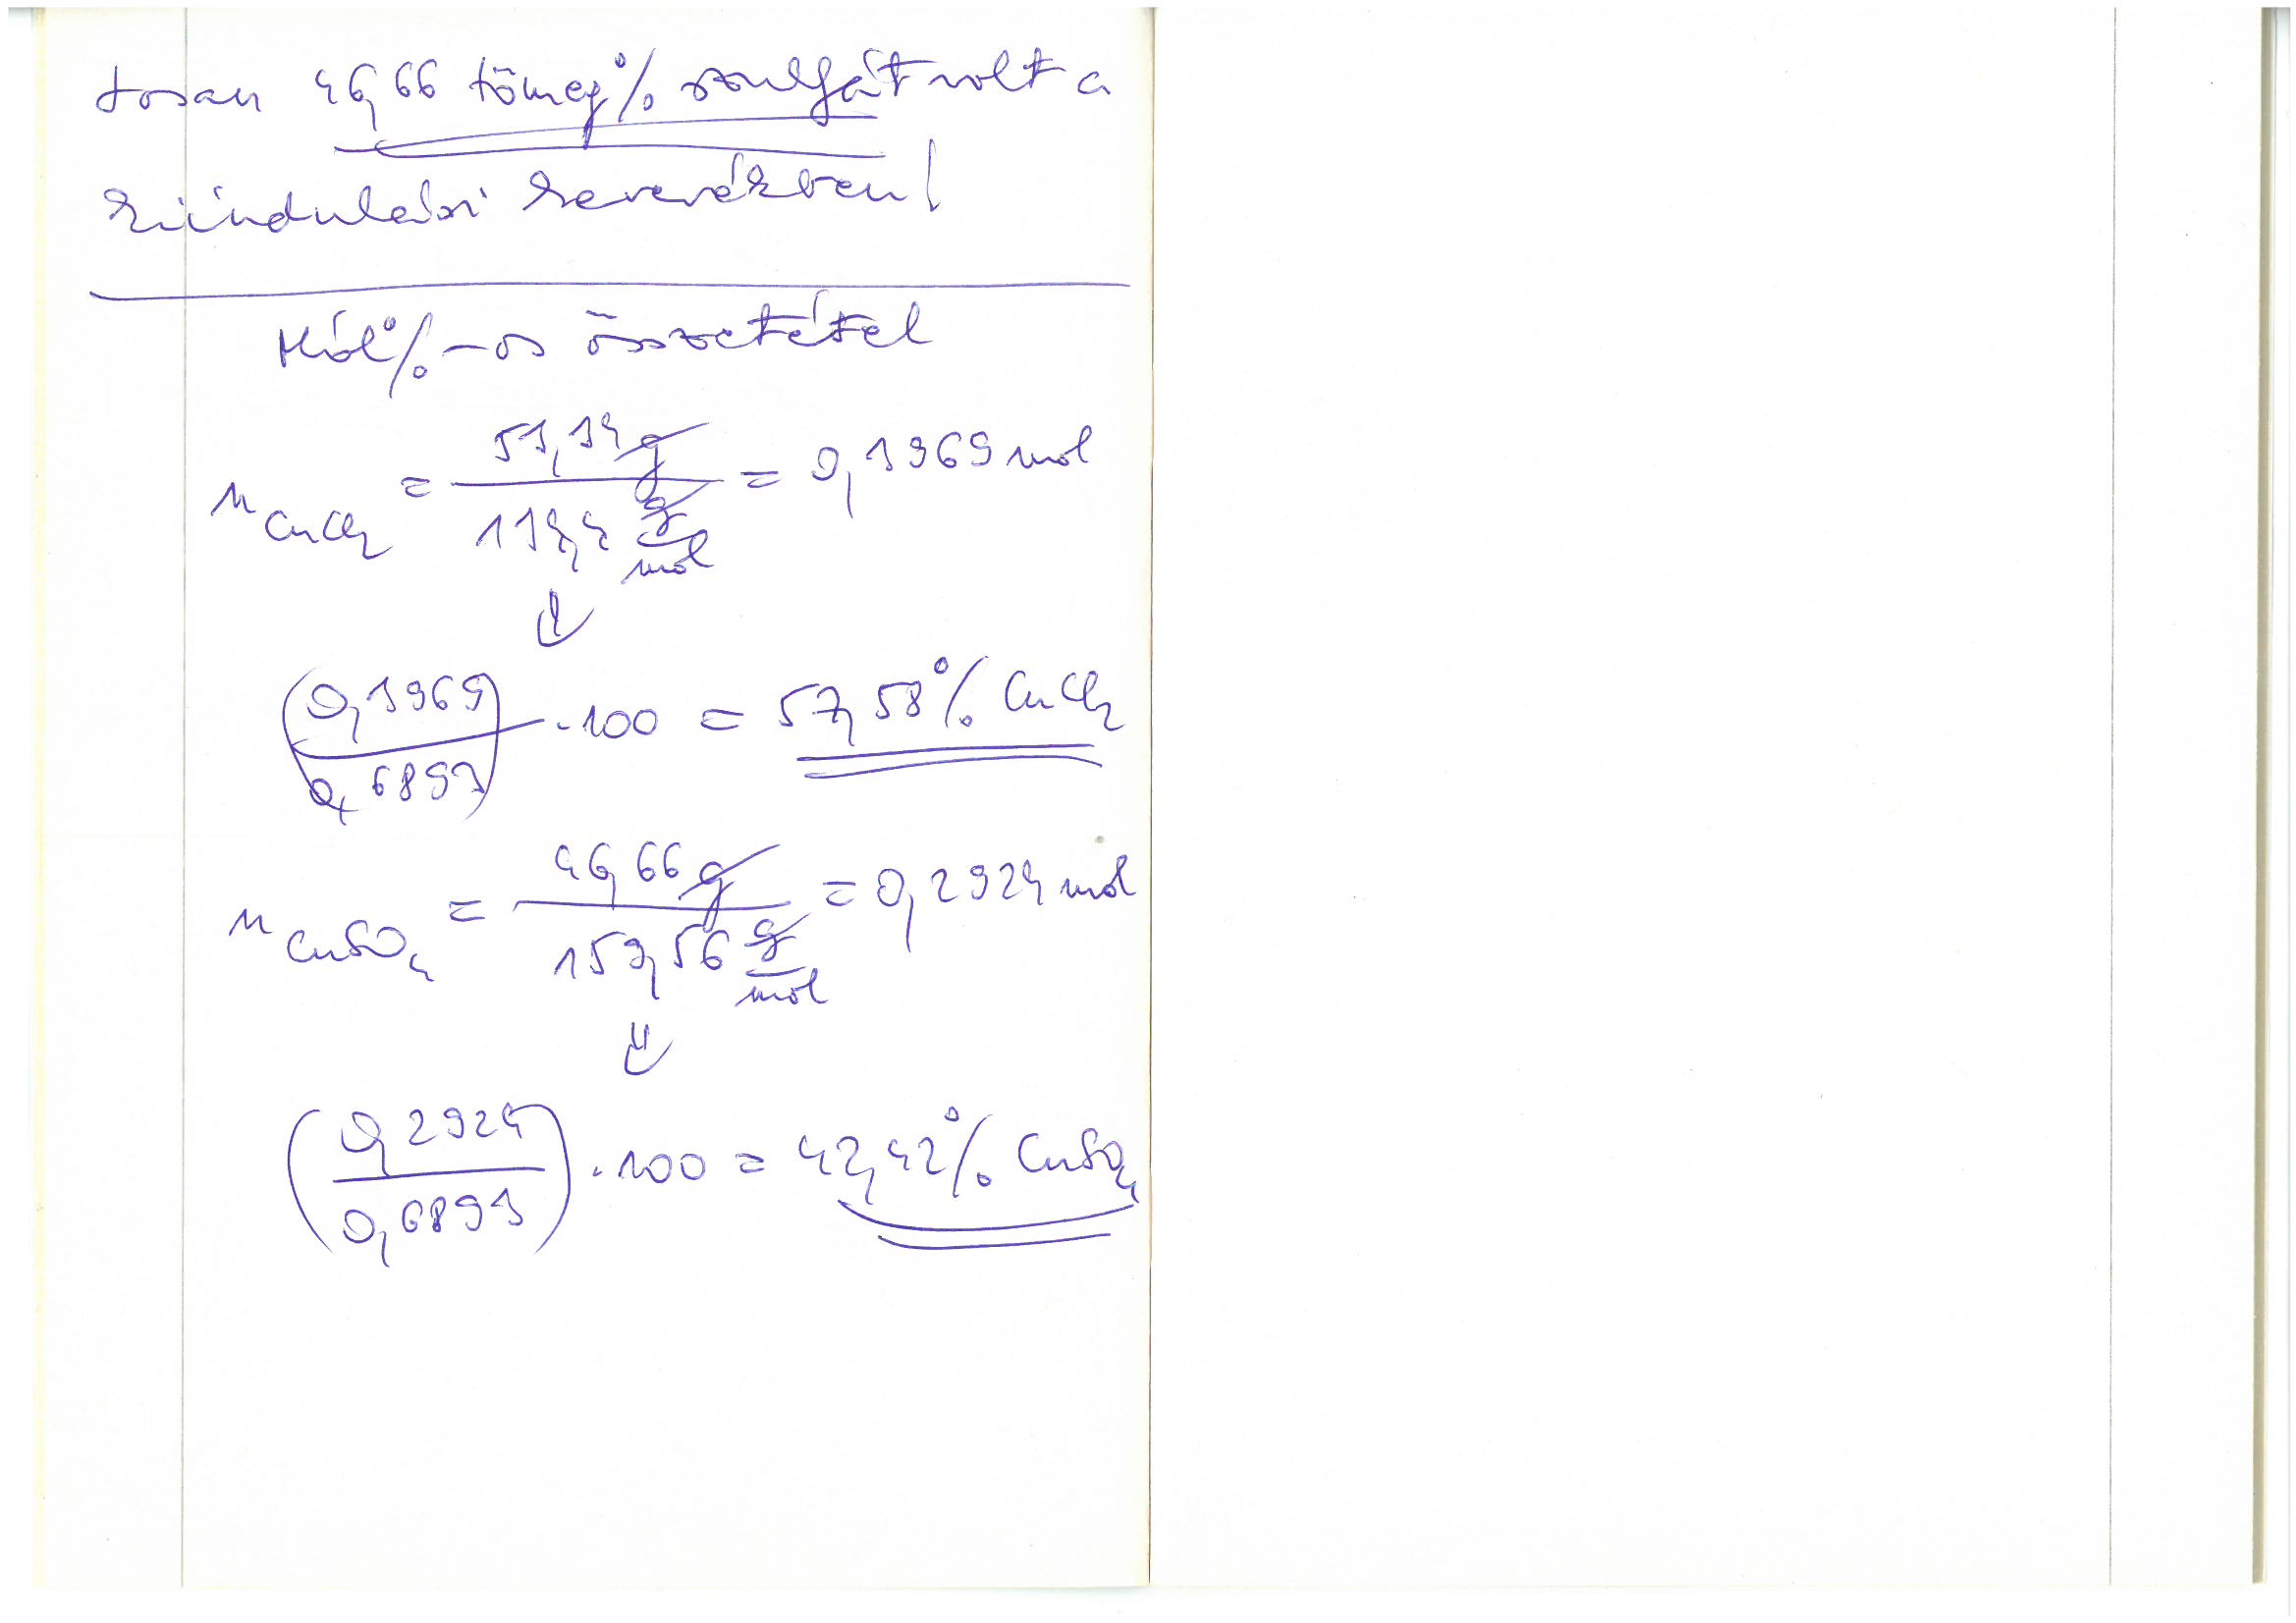 tosan 46,66 tömeg% szulfát volt a
kiindulási keverékben!
Mól%-os összetétel
n CuCl₂ = 53,34 g / 134,4 g/mol = 0,3969 mol
⇓
(0,3969 / 0,6893) · 100 = 57,58% CuCl₂
n CuSO₄ = 46,66 g / 159,56 g/mol = 0,2924 mol
⇓
(0,2924 / 0,6893) · 100 = 42,42% CuSO₄